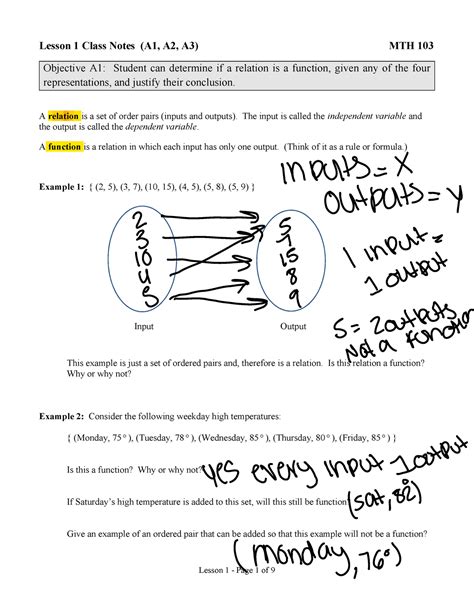 Lesson 1 Class Notes (A1, A2, A3) MTH 103
Objective A1: Student can determine if a relation is a function, given any of the four
representations, and justify their conclusion.
A relation is a set of order pairs (inputs and outputs). The input is called the independent variable and
the output is called the dependent variable.
A function is a relation in which each input has only one output. (Think of it as a rule or formula.)
inputs = X
outputs = y
Example 1: { (2, 5), (3, 7), (10, 15), (4, 5), (5, 8), (5, 9) }
2
3
10
4
5
5
7
15
8
9
1 input =
1 output
5 = 2 outputs
Not a function
Input Output
This example is just a set of ordered pairs and, therefore is a relation. Is this relation a function?
Why or why not?
Example 2: Consider the following weekday high temperatures:
{ (Monday, 75°), (Tuesday, 78°), (Wednesday, 85°), (Thursday, 80°), (Friday, 85°) }
Is this a function? Why or why not? yes every input 1 output
If Saturday's high temperature is added to this set, will this still be function? (sat, 82°)
Give an example of an ordered pair that can be added so that this example will not be a function?
(monday, 76°)
Lesson 1 - Page 1 of 9